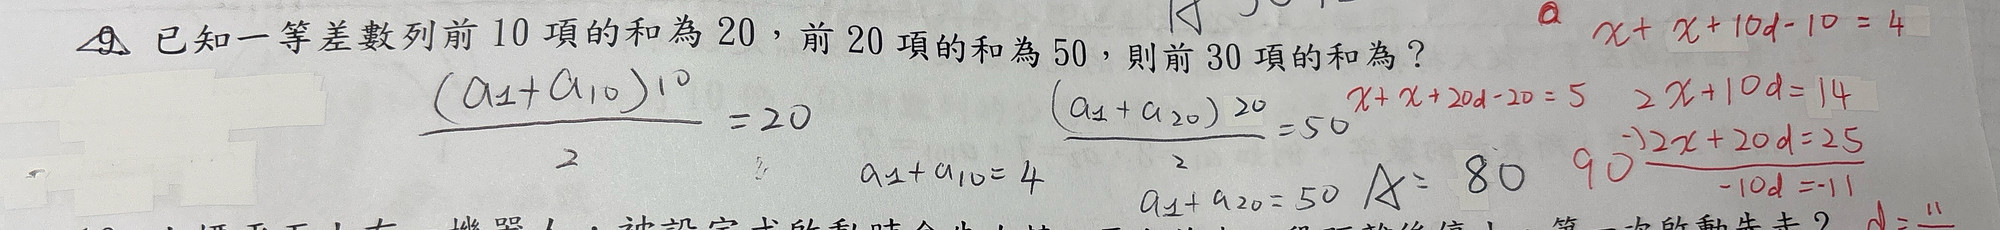 9. 已知一等差數列前 10 項的和為 20，前 20 項的和為 50，則前 30 項的和為？
(a1+a10)10
2
=20
a1+a10=4
(a1+a20)20
2
=50
a1+a20=50
A=80
90
x+x+10d-10=4
x+x+20d-20=5
2x+10d=14
-)2x+20d=25
-10d=-11
d=11